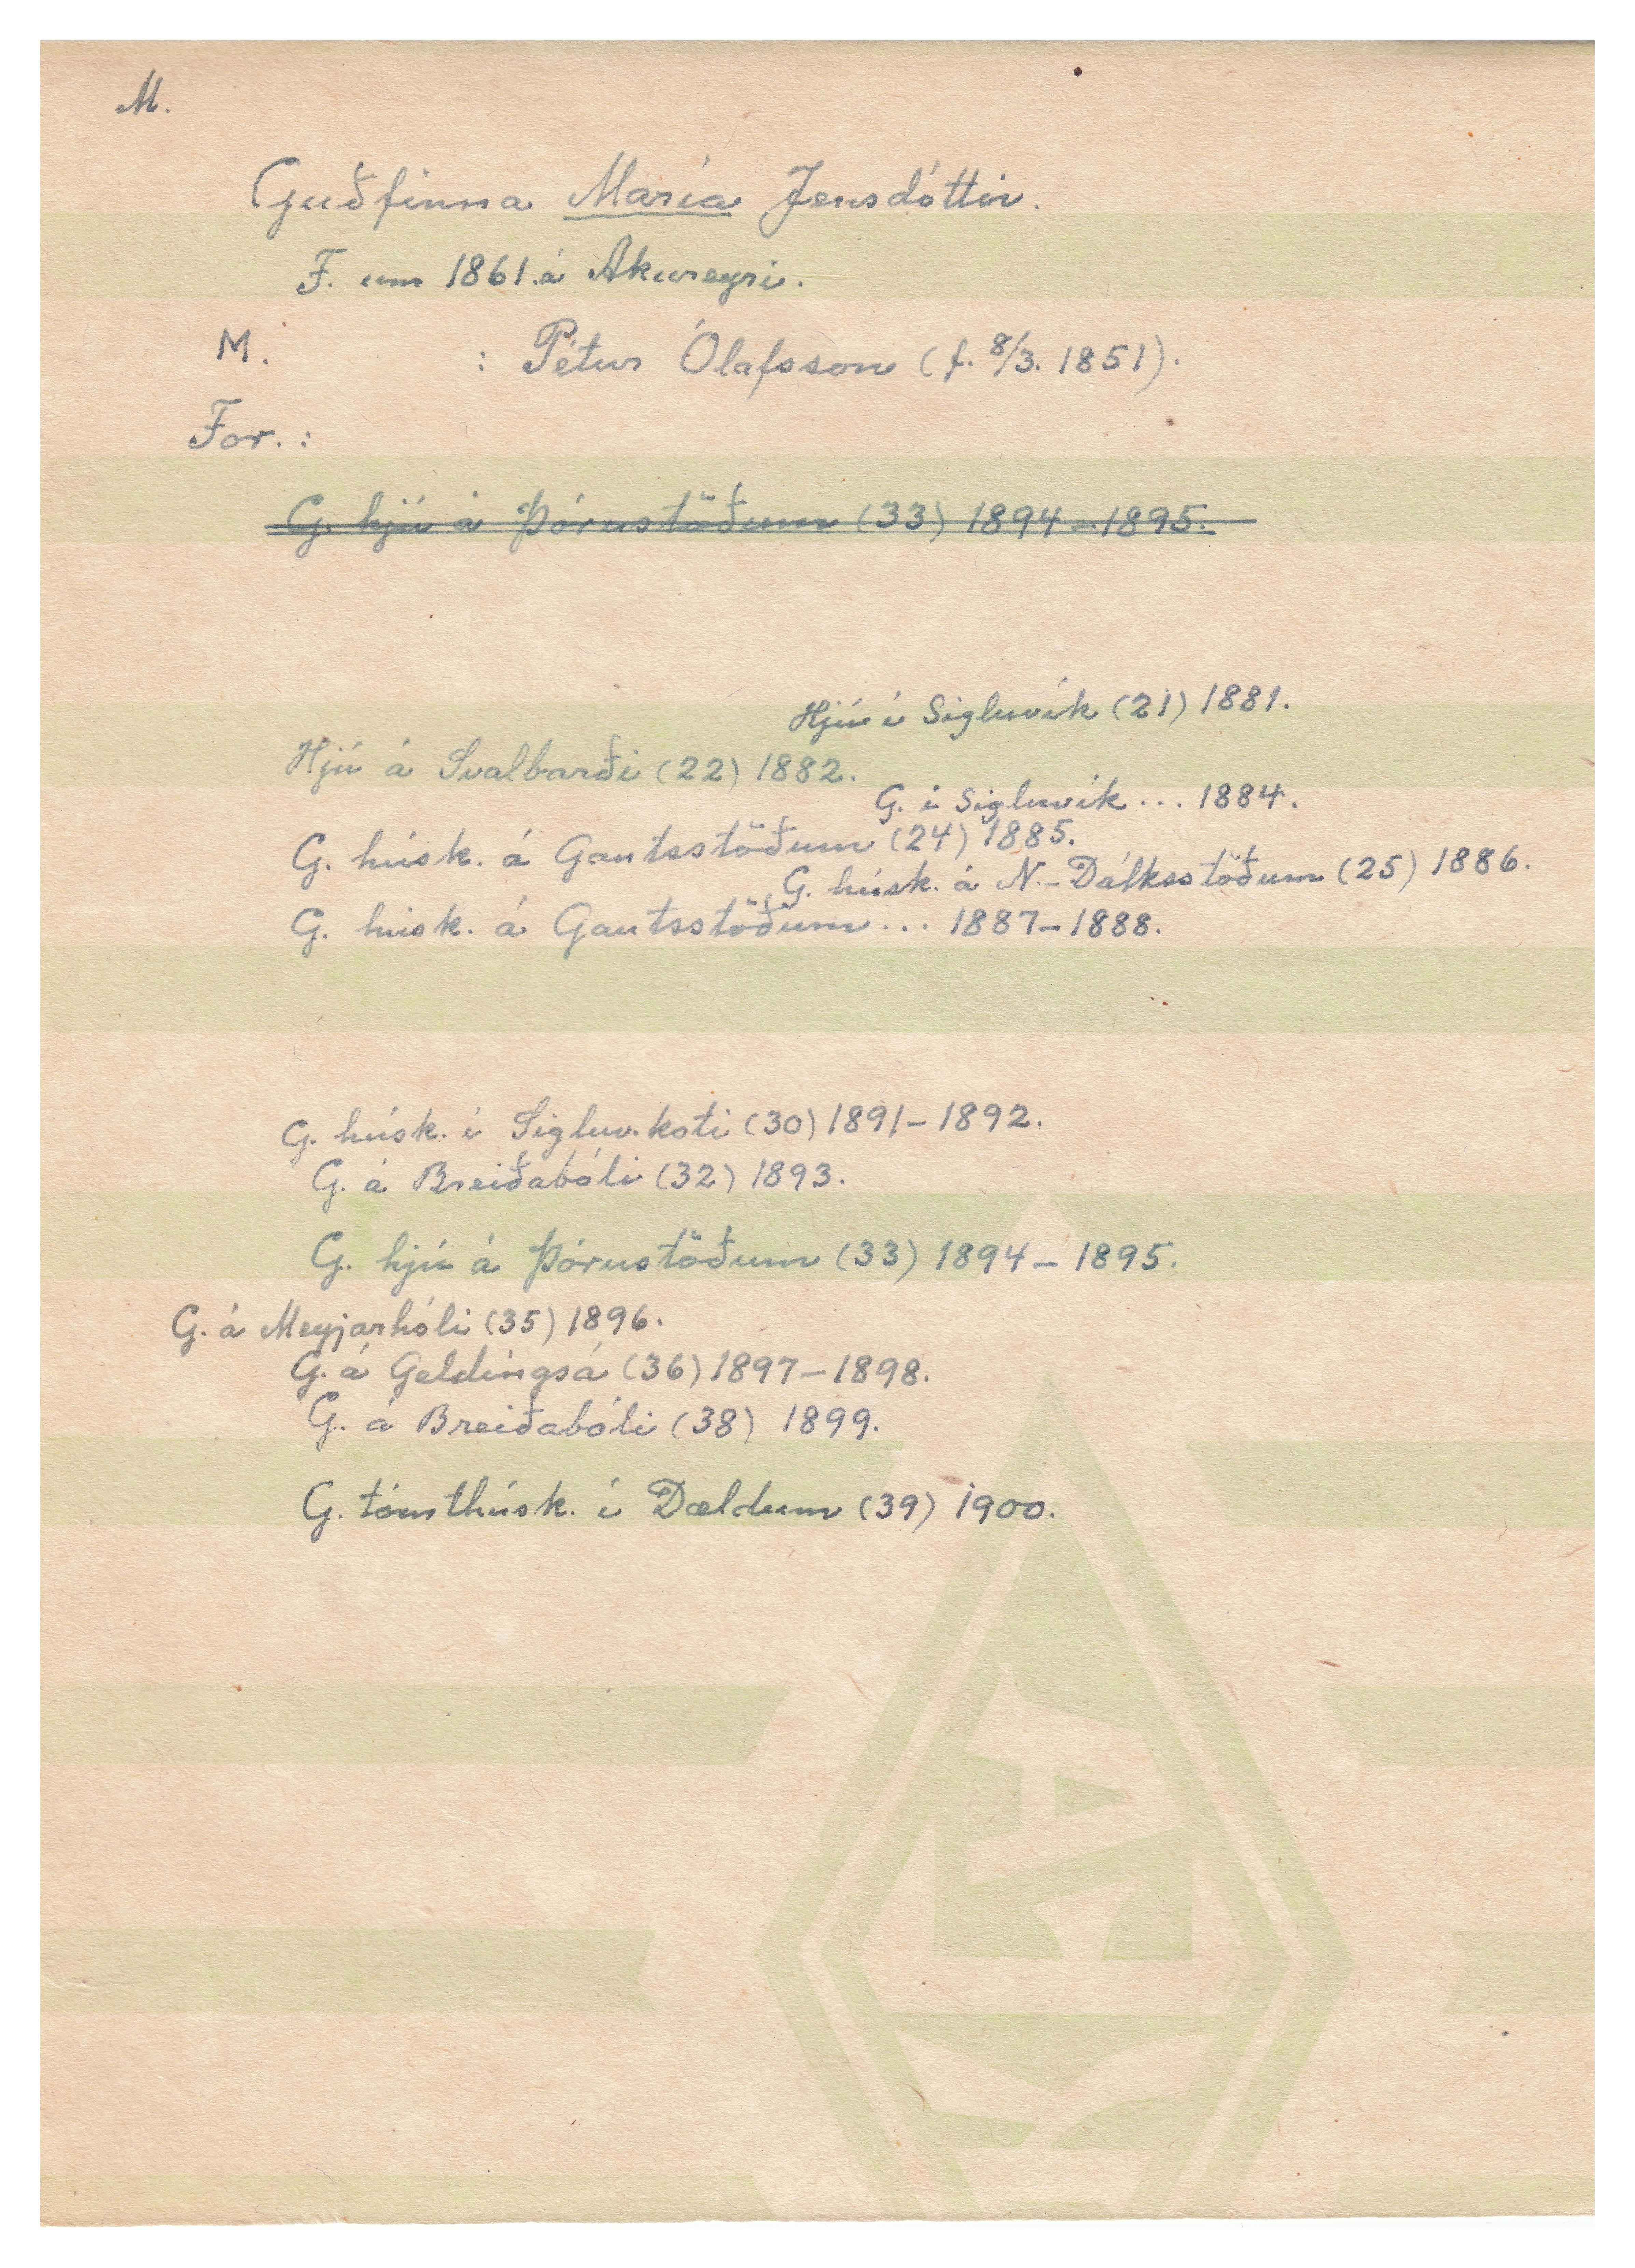 M.
Guðfinna María Jensdóttir.
F. um 1861. á Akureyri.
M. : Pétur Ólafsson (f. 8/3. 1851).
For. :
G. hjú á Þórustöðum (33) 1894-1895.
Hjú í Sigluvík (21) 1881.
Hjú á Svalbarði (22) 1882.
G. í Sigluvík... 1884.
G. húsk. á Gautsstöðum (24) 1885.
G. húsk. á N.-Dálksstöðum (25) 1886.
G. húsk. á Gautsstöðum... 1887-1888.
G. húsk. í Sigluv.koti (30) 1891-1892.
G. á Breiðabóli (32) 1893.
G. hjú á Þórustöðum (33) 1894-1895.
G. á Meyjarhóli (35) 1896.
G. á Geldingsá (36) 1897-1898.
G. á Breiðabóli (38) 1899.
G. tómthúsk. í Dældum (39) 1900.